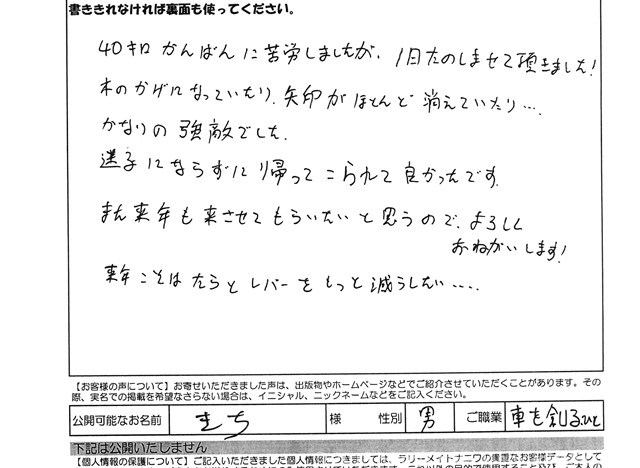 書ききれなければ裏面も使ってください。
40キロかんばんに苦労しましたが、1日たのしませて頂きました!
木のかげになっていたり、矢印がほとんど消えていたり…
かなりの強敵でした。
迷子にならずに帰ってこられて良かったです。
また来年も来させてもらいたいと思うので、よろしく
おねがいします!
来年こそはたらとレバーをもっと減らしたい….
【お客様の声について】お寄せいただきました声は、出版物やホームページなどでご紹介させていただくことがあります。その
際、実名での掲載を希望なさらない場合は、イニシャル、ニックネームなどをご記入ください。
公開可能なお名前 まち 様 性別 男 ご職業 車を創るひと
下記は公開いたしません
【個人情報の保護について】ご記入いただきました個人情報につきましては、ラリーメイトナニワの貴重なお客様データとして